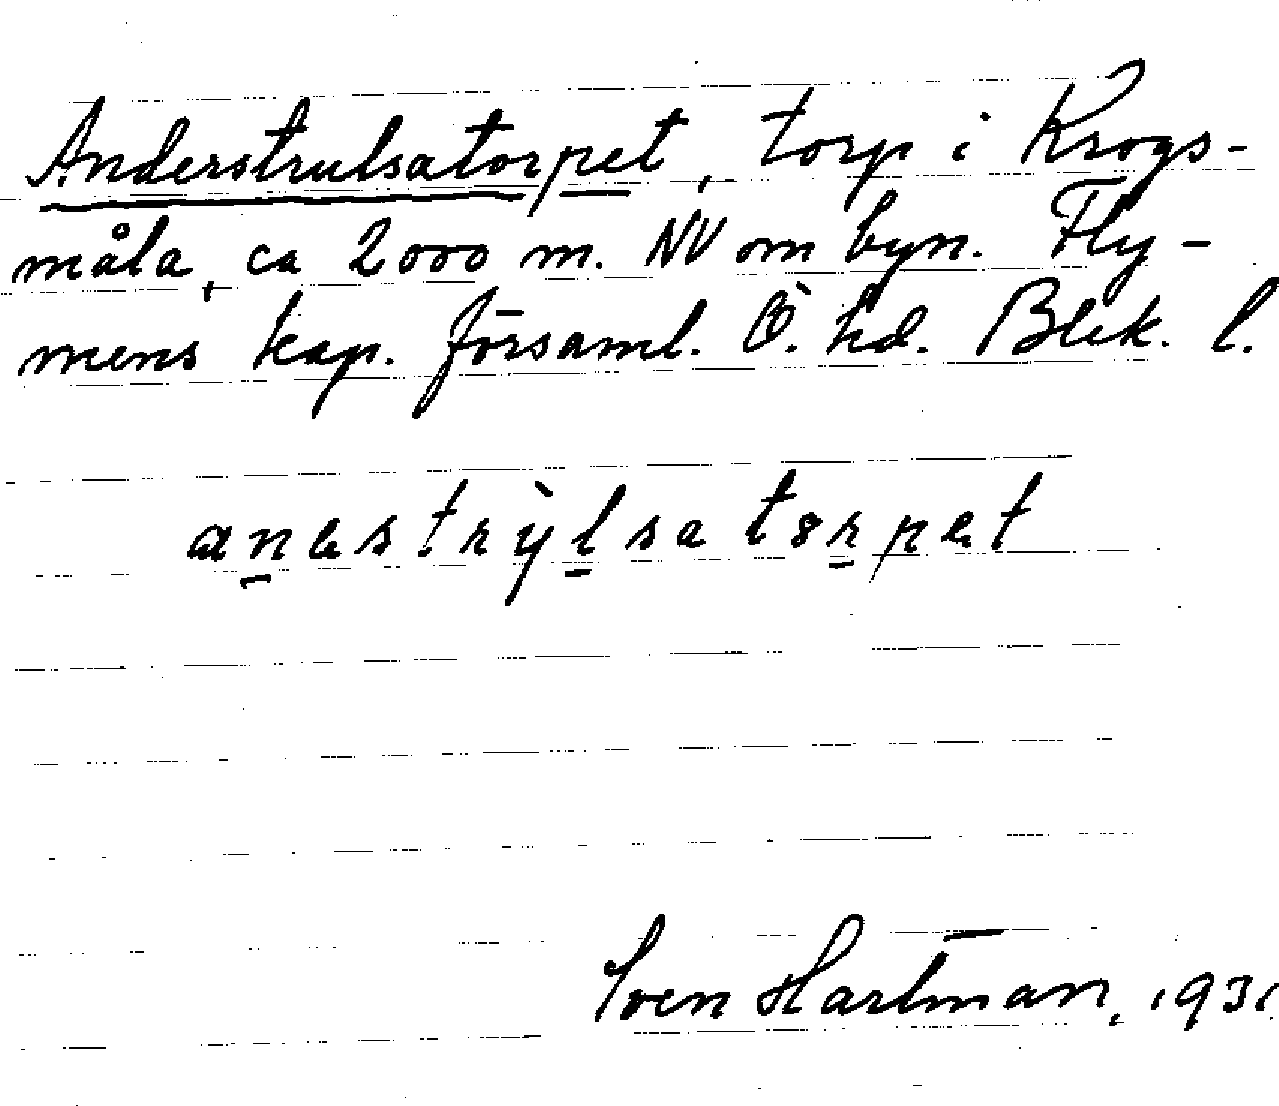 Anderstrulsatorpet, torp i Krogs-
måla, ca 2000 m. NV om byn. Fly-
mens kap. församl. Ö. hd. Blek. l.
anestrỳlsatɵrpet
Sven Hartman, 1931